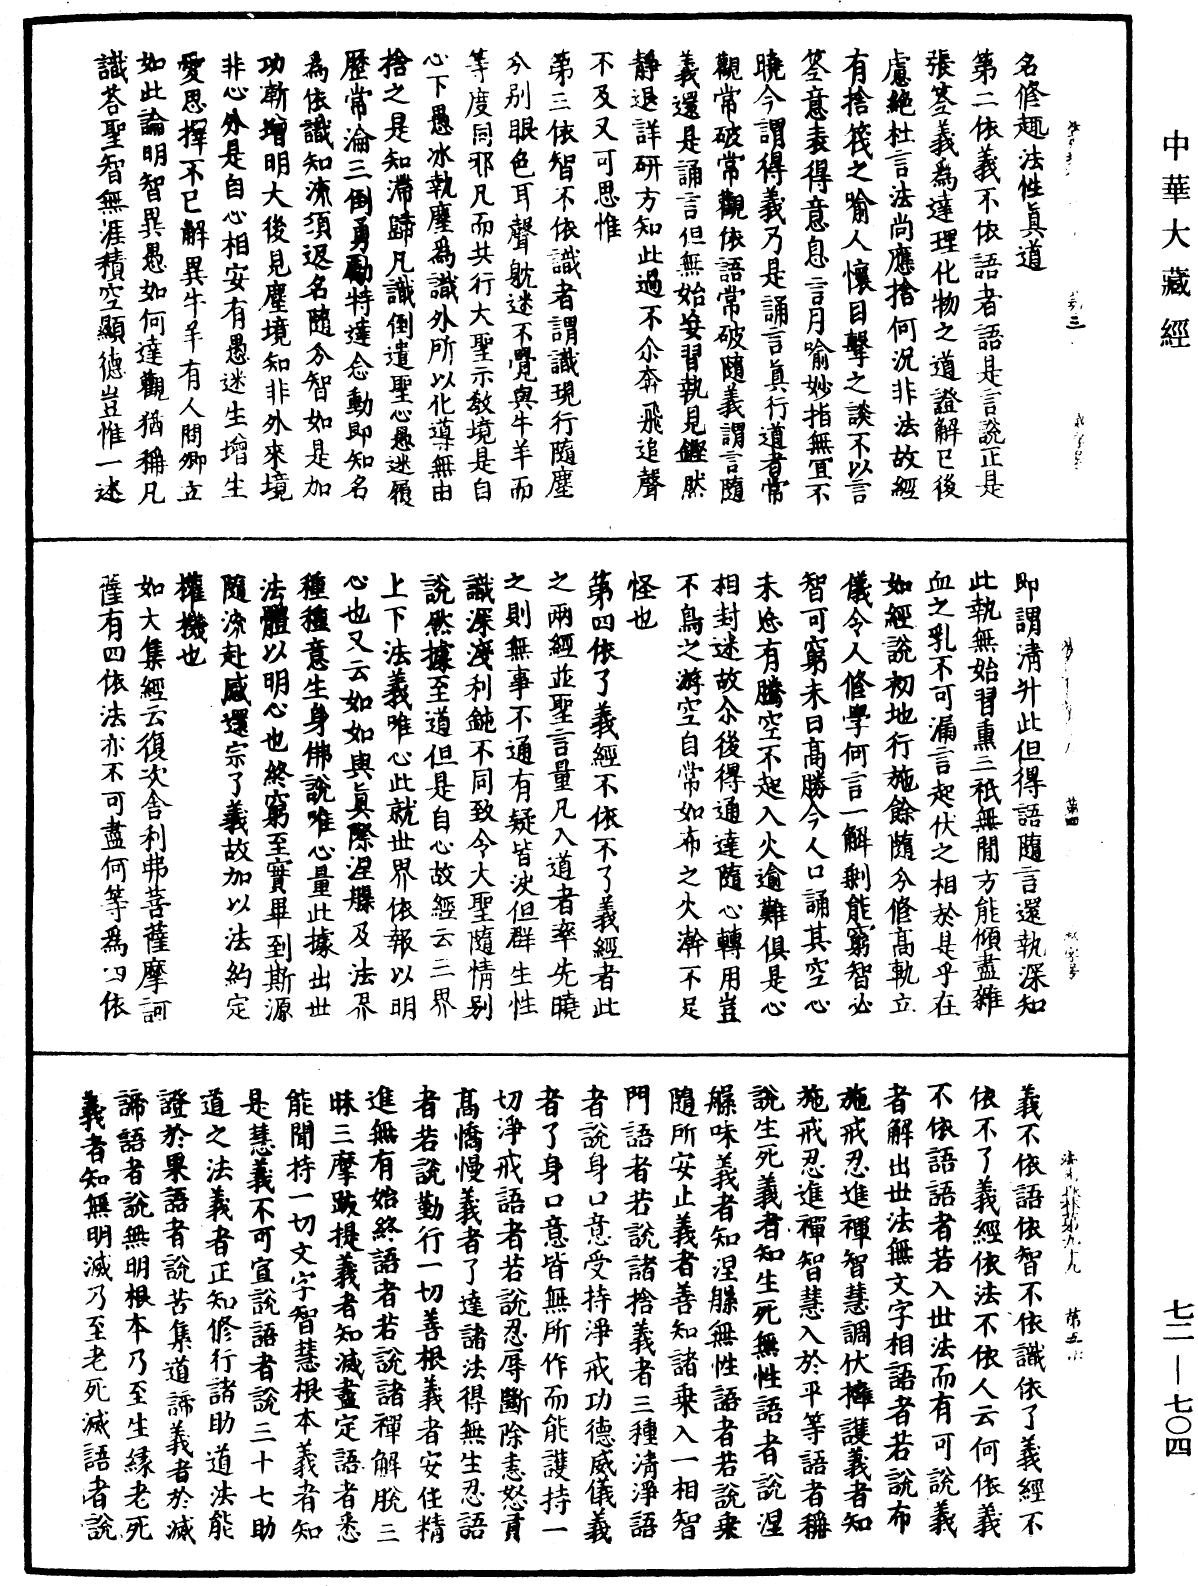 中華大藏經
名修趣法性真道
第二依義不依語者語是言說正是
張筌義為達理化物之道證解已後
慮絕杜言法尚應捨何況非法故經
有捨筏之喻人懷目擊之談不以言
筌意表得意息言月喻妙指無宜不
曉今謂得義乃是誦言真行道者常
觀常破常觀依語常破隨義謂言隨
義還是誦言但無始妄習執見鏗然
靜退詳研方知此過不尒奔飛追聲
不及又可思惟
第三依智不依識者謂識現行隨塵
分別眼色耳聲躭迷不覺與牛羊而
等度同邪凡而共行大聖示教境是自
心下愚冰執塵為識外所以化導無由
捨之是知滯歸凡識倒遣聖心愚迷履
歷常淪三倒勇勵特達念動即知名
為依識知流須返名隨分智如是加
功漸增明大後見塵境知非外來境
非心外是自心相安有愚迷生增生
愛思擇不已解異牛羊有人問卿立
如此論明智異愚如何達觀猶稱凡
識荅聖智無涯積空顯德豈惟一迷
即謂清升此但得語隨言還執深知
此執無始習熏三祇無間方能傾盡雜
血之乳不可漏言起伏之相於是乎在
如經說初地行施餘隨分修高軌立
儀令人修學何言一解剩能窮智必
智可窮未日高勝今人口誦其空心
未忘有騰空不起入火逾難俱是心
相封迷故尒後得通達隨心轉用豈
不鳥之游空自常如布之火澣不足
怪也
第四依了義經不依不了義經者此
之兩經並聖言量凡入道者率先曉
之則無事不通有疑皆決但群生性
識深淺利鈍不同致令大聖隨情別
說然據至道但是自心故經云三界
上下法義唯心此就世界依報以明
心也又云如如與真際涅槃及法界
種種意生身佛說唯心量此據出世
法體以明心也終窮至實畢到斯源
隨流赴感還宗了義故加以法約定
權機也
如大集經云復次舍利弗菩薩摩訶
薩有四依法亦不可盡何等為四依
義不依語依智不依識依了義經不
依不了義經依法不依人云何依義
不依語語者若入世法而有可說義
者解出世法無文字相語者若說布
施戒忍進禪智慧調伏擁護義者知
施戒忍進禪智慧入於平等語者稱
說生死義者知生死無性語者說涅
槃味義者知涅槃無性語者若說乘
隨所安止義者善知諸乘入一相智
門語者若說諸捨義者三種清淨語
者說身口意受持淨戒功德威儀義
者了身口意皆無所作而能護持一
切淨戒語者若說忍辱斷除恚怒貢
高憍慢義者了達諸法得無生忍語
者若說勤行一切善根義者安住精
進無有始終語者若說諸禪解脫三
昧三摩跋提義者知滅盡定語者悉
能聞持一切文字智慧根本義者知
是慧義不可宣說語者說三十七助
道之法義者正知修行諸助道法能
證於果語者說苦集道諦義者於滅
諦語者說無明根本乃至生緣老死
義者知無明滅乃至老死滅語者說
七二—七〇四